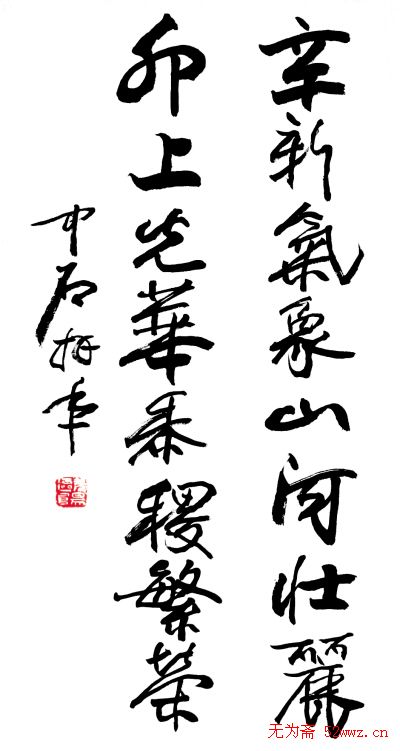 辛新氣象山河壯麗
卯上光華黍稷繁榮
中石拜年
无为斋 52wwz.cn